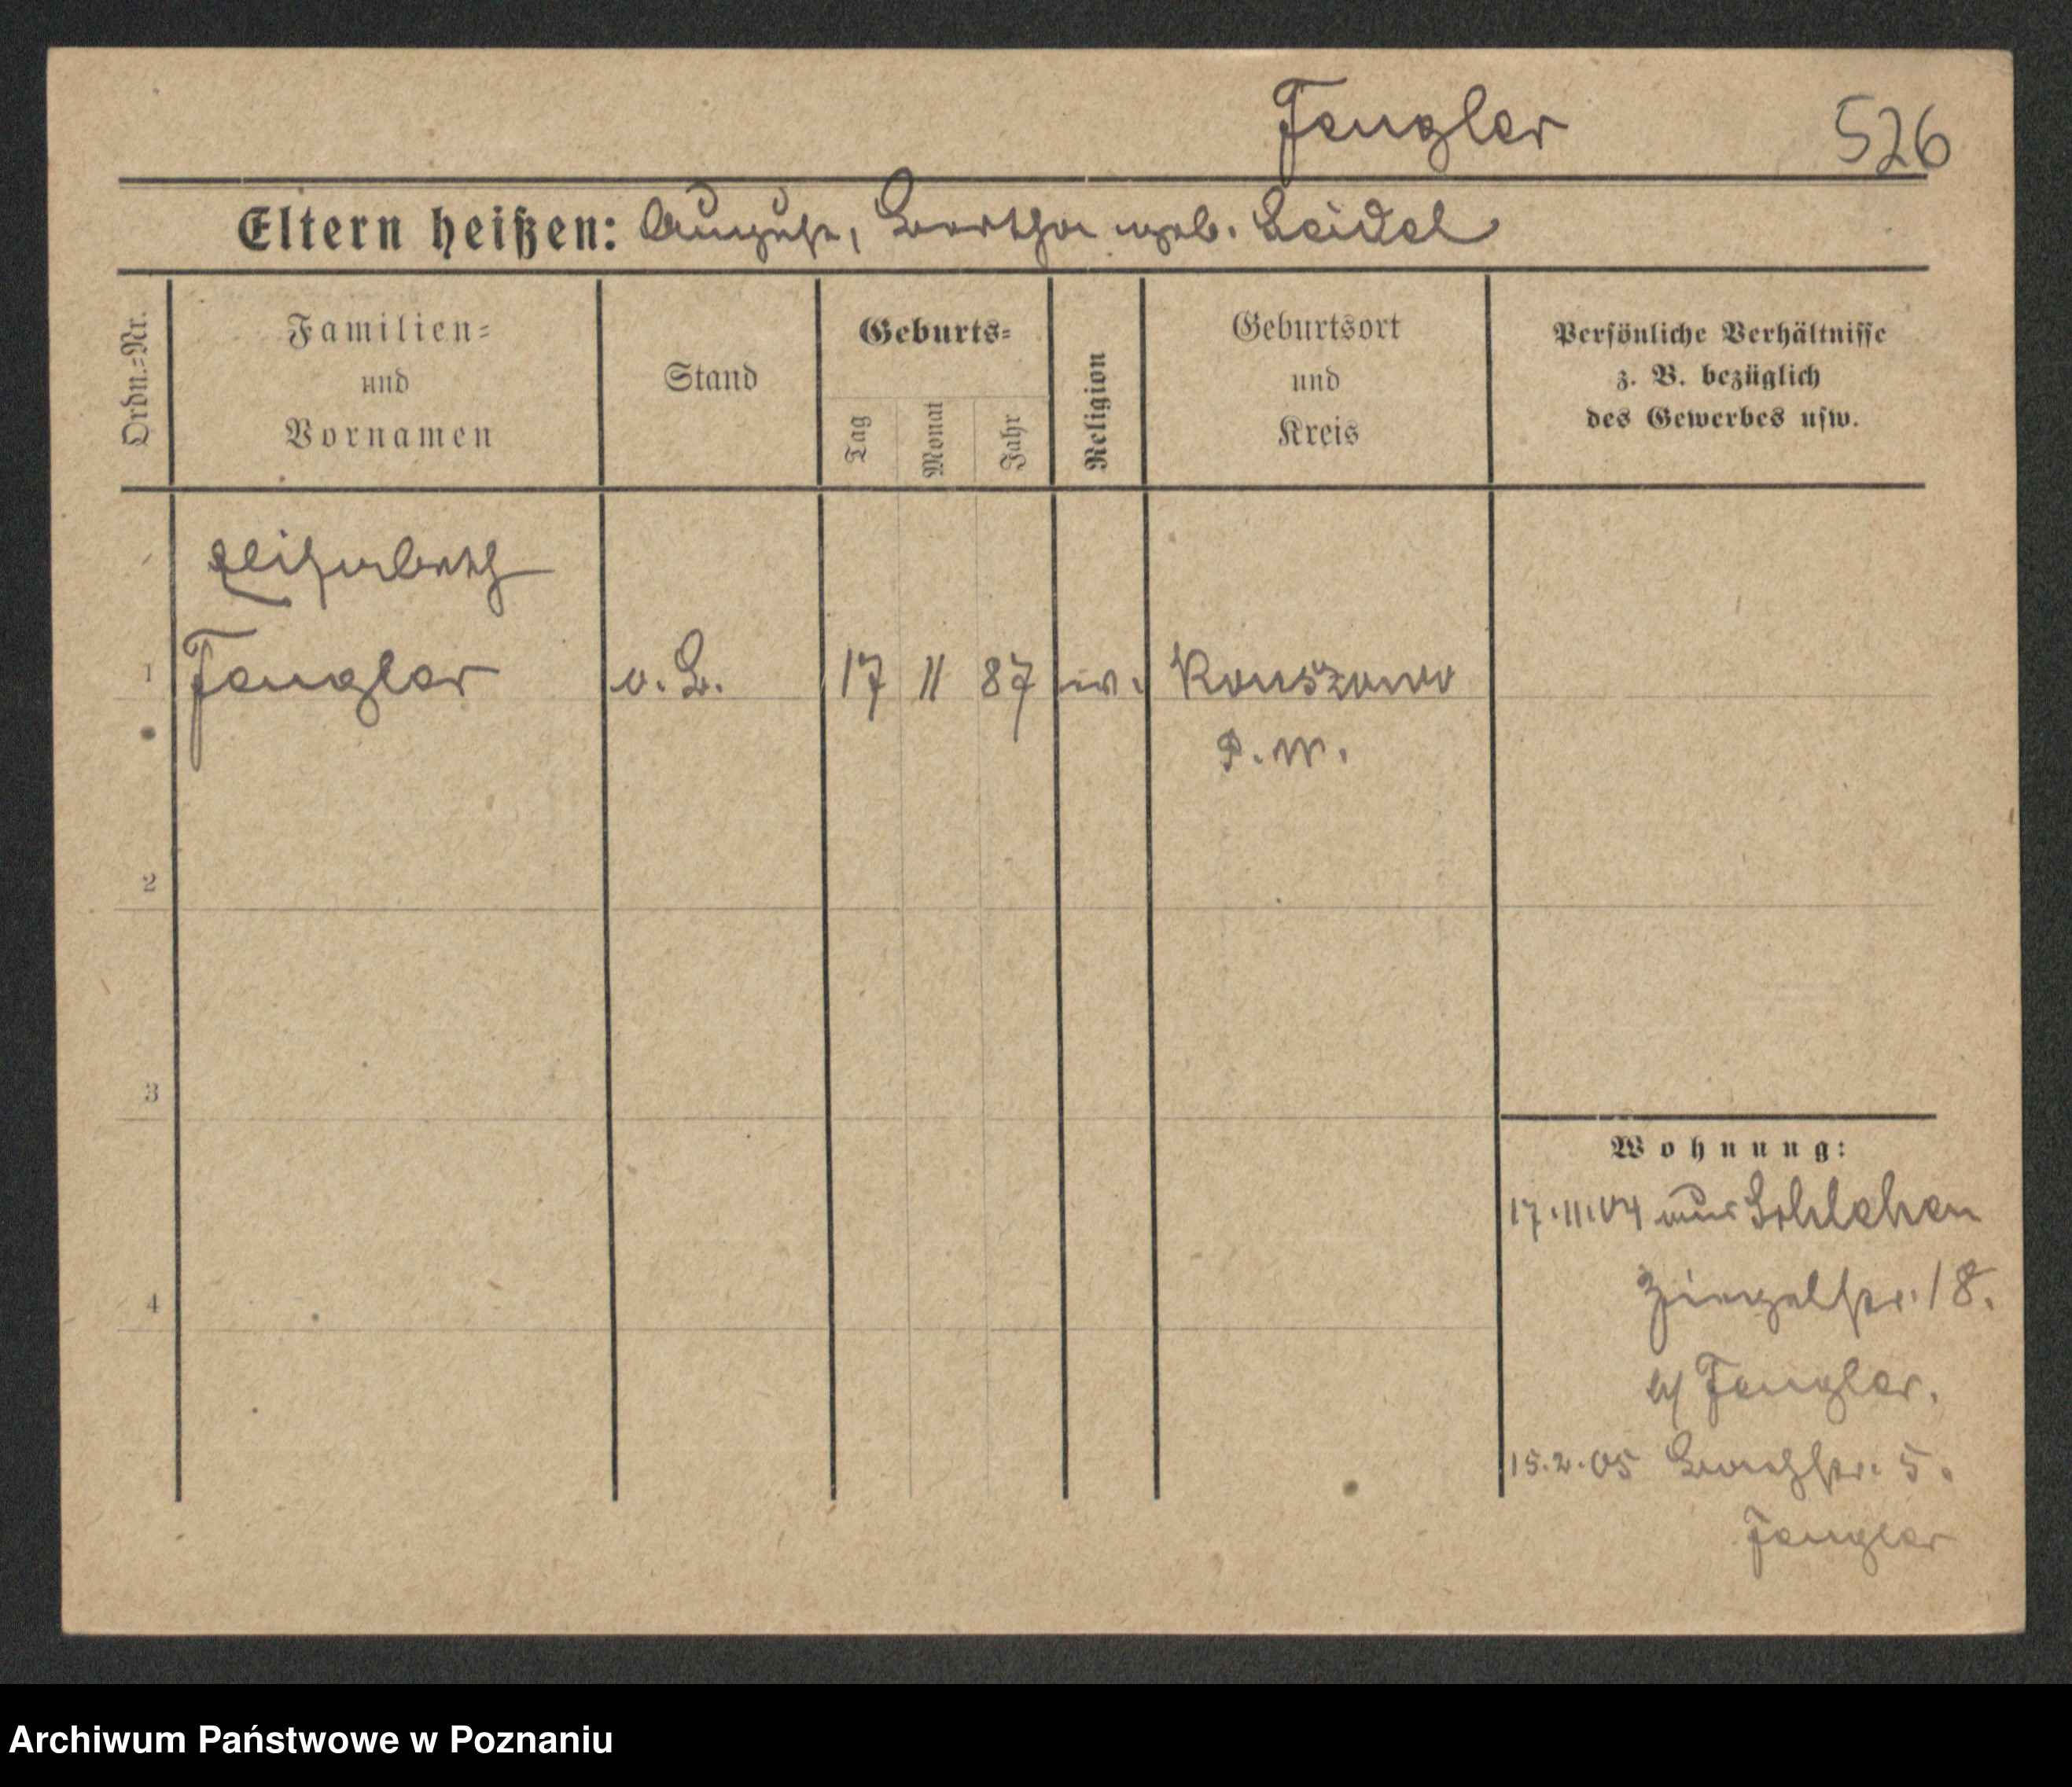 Fengler 526
Eltern heißen: August, Bertha geb. Seidel
Ordn.=Nr.
Familien=
und
Vornamen
Stand
Geburts=
Tag
Monat
Jahr
Religion
Geburtsort
und
Kreis
Persönliche Verhältnisse
z. B. bezüglich
des Gewerbes usw.
Elisabeth
1 Fengler o. B. 17 11 87 ev. Konszowo
P. W.
2
3
4
Wohnung:
17.11.04 aus
Ziegelstr. 18.
b/ Fengler.
15.2.05 5.
Fengler
Archiwum Państwowe w Poznaniu